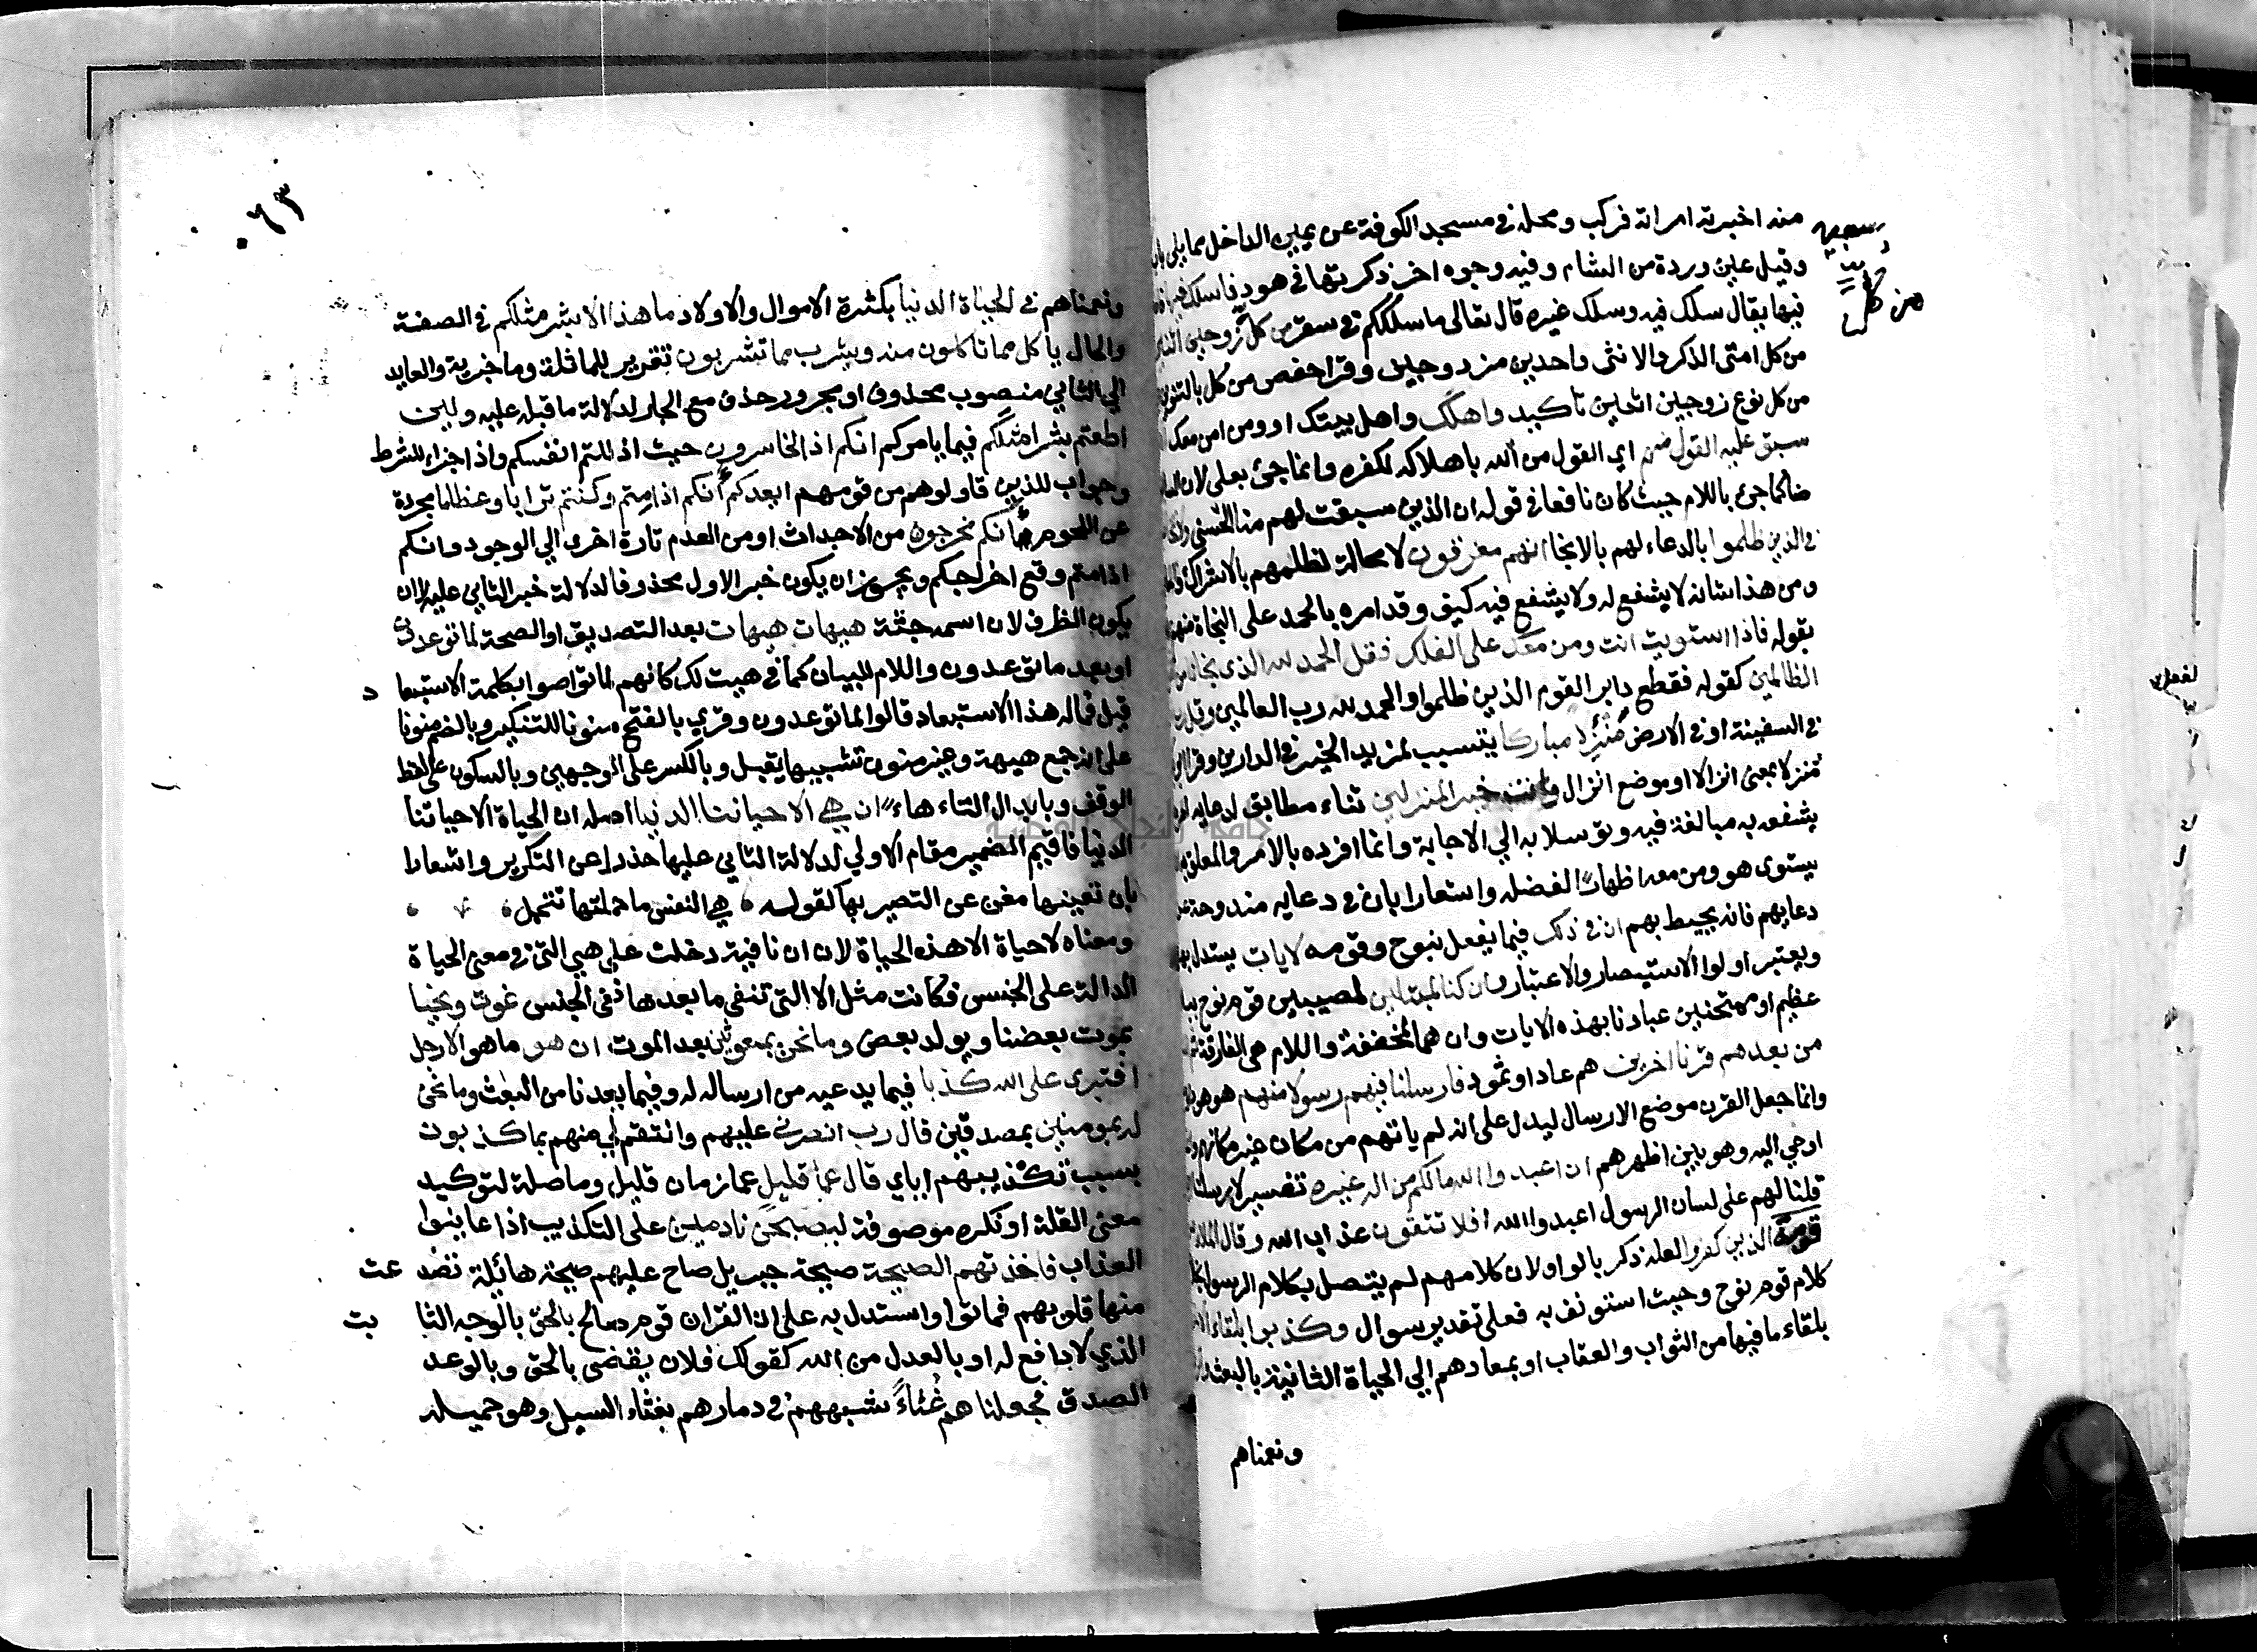 منه اخبرته امراته فركب ومحله في مسجد الكوفة عن يمين الداخل مما يلي باب
وقيل عين وردة من الشام وفيه وجوه اخر ذكرتها في هود فاسلك فيها فادخل
فيها يقال سلك فيه وسلك غيره قال تعالى ما سلككم في سقر من كل زوجين اثنين
من كل امتى الذكر والانثى واحدين مزدوجين وقرا حفص من كل بالتنوين
من كل نوع زوجين اثنين تاكيد واهلك واهل بيتك او ومن امن معك
سبق عليه القول منهم اي القول من الله باهلاكه لكفره وانما جئ بعلى لان
ضا كما جئ باللام حيث كان نافعا في قوله ان الذين سبقت لهم منا الحسنى
في الذين ظلموا بالدعاء لهم بالانجا انهم مغرقون لا محالة لظلمهم بالاشراك
ومن هذا شانه لا يشفع له ولا يشفع فيه كيف وقد امره بالحمد على النجاة منهم
بقوله فاذا استويت انت ومن معك على الفلك فقل الحمد لله الذي نجانا من
الظالمين كقوله فقطع دابر القوم الذين ظلموا والحمد لله رب العالمين وقل
في السفينة او في الارض منزلا مباركا يتسبب لمزيد الخير في الدارين وقرا
منزلا بمعنى انزالا او موضع انزال وانت خير المنزلين ثناء مطابق لدعايه
يشفعه به مبالغة فيه وتوسلا به الي الاجابة وانما افرده بالامر والمعلق به
يستوى هو ومن معه اظهارا لفضله واستعارا بان في دعايه مندوحة عن
دعايهم فانه يحيط بهم ان في ذلك فيما يفعل بنوح وقومه لايات يستدل بها
ويعتبر اولوا الاستبصار والاعتبار وان كنا لمبتلين لمصيبين قوم نوح
عظيم او ممتحنين عبادنا بهذه الايات وان هي المخففة واللام هي الفارقة
من بعدهم قرنا اخرين هم عاد او ثمود فارسلنا فيهم رسولا منهم هو هود
وانما جعل القرن موضع الارسال ليدل على انه لم ياتهم من مكان غير مكانهم
اوحي اليه وهو بين اظهرهم ان اعبدوا الله مالكم من اله غيره تفسير لارسلنا
قلنا لهم على لسان الرسول اعبدوا الله افلا تتقون عذاب الله وقال الملا
قومه الذين كفروا لعله ذكر بالواو لان كلامهم لم يتصل بكلام الرسول
كلام قوم نوح وحيث استونف به فعلى تقدير سوال وكذبوا بلقاء
بلقاء ما فيها من الثواب والعقاب او بمعادهم الي الحياة الثانية بالبعث
ونعمناهم
من كل
٦٣
ونعمناهم في الحياة الدنيا بكثرة الاموال والاولاد ما هذا الا بشر مثلكم في الصفة
والحال ياكل مما تاكلون منه ويشرب مما تشربون تقرير للماثلة وما خبرية والعايد
الي الثاني منصوب محذوف او مجرور حذف مع الجار لدلالة ما قبله عليه ولين
اطعتم بشرا مثلكم فيما يامركم انكم اذا لخاسرون حيث اذللتم انفسكم واذا جزاء للشرط
وجواب للذين قاولوهم من قومهم ايعدكم أنكم اذا متم وكنتم ترابا وعظاما مجردة
عن اللحوم أنكم مخرجون من الاجداث او من العدم تارة اخرى الي الوجود وانكم
اذا متم وقع اخراجكم ويجوز ان يكون خبر الاول محذوفا لدلالة خبر الثاني عليه لا ان
يكون الظرف لان اسمه جثة هيهات هيهات بعد التصديق او الصحة لما توعدون
او بعد ما توعدون واللام للبيان كما في هيت لك كانهم لما تواصوا بكلمة الاستبعا د
قيل فماله هذا الاستبعاد قالوا لما توعدون وقري بالفتح منونا للتنكير وبالضم منونا
على انه جمع هيهة وغير منون تشبيها بقبل وبالكسر على الوجهين وبالسكون على لفظ
الوقف وبابدال التاء هاء ان هي الا حياتنا الدنيا اصله ان الحياة الا حياتنا
الدنيا فاقيم الضمير مقام الاولي لدلالة الثاني عليها حذرا عن التكرير واشعارا
بان تعينها مغن عن التصريح بها كقوله هي النفس ما حملتها تتحمل
ومعناه لا حياة الا هذه الحياة لان ان نافية دخلت علي هي التي في معنى الحياة
الدالة على الجنس فكانت مثل لا التي تنفي ما بعدها نفي الجنس نموت ونحيا
يموت بعضنا ويولد بعض وما نحن بمبعوثين بعد الموت ان هو ما هو الا رجل
افترى على الله كذبا فيما يدعيه من ارساله له وفيما يعدنا من البعث وما نحن
له بمومنين بمصدقين قال رب انصرني عليهم وانتقم لي منهم بما كذبون
بسبب تكذيبهم اياي قال عما قليل عما زمان قليل وما صلة لتوكيد
معنى القلة او نكره موصوفة ليصبحن نادمين على التكذيب اذا عاينوا
العذاب فاخذتهم الصيحة صيحة جبريل صاح عليهم صيحة هائلة تصد عت
منها قلوبهم فماتوا واستدل به على ان القران قوم صالح بالحق بالوجه الثا بت
الذي لا دافع له او بالعدل من الله كقولك فلان يقضى بالحق وبالوعد
الصدق فجعلناهم غثاءً شبههم في دمارهم بغثاء السيل وهو حميله